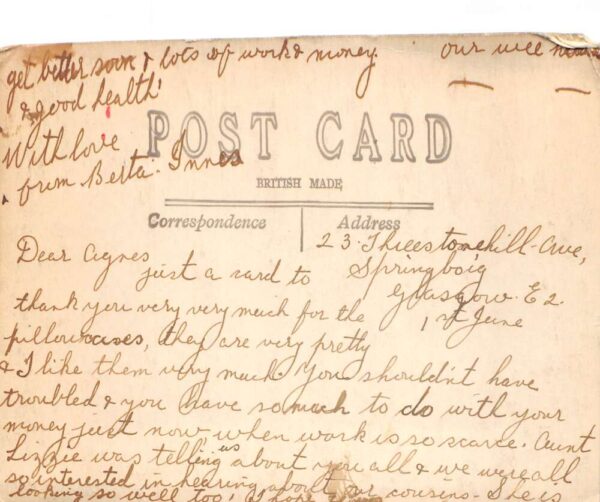 get better soon & lots of work & money. our wee
& good health!
With love
from Berta. Innes
POST CARD
BRITISH MADE
Correspondence
Address
23. Threestonehill-Ave,
Springboig
Glasgow. E2.
1st June
Dear Agnes
just a card to
thank you very very much for the
pillowcases, they are very pretty
& I like them very much. You shouldn't have
troubled & you have so much to do with your
money just now when work is so scarce. Aunt
Lizzie was telling us about you all & we were all
so interested in hearing about our cousins. She's
looking so well too, I hope